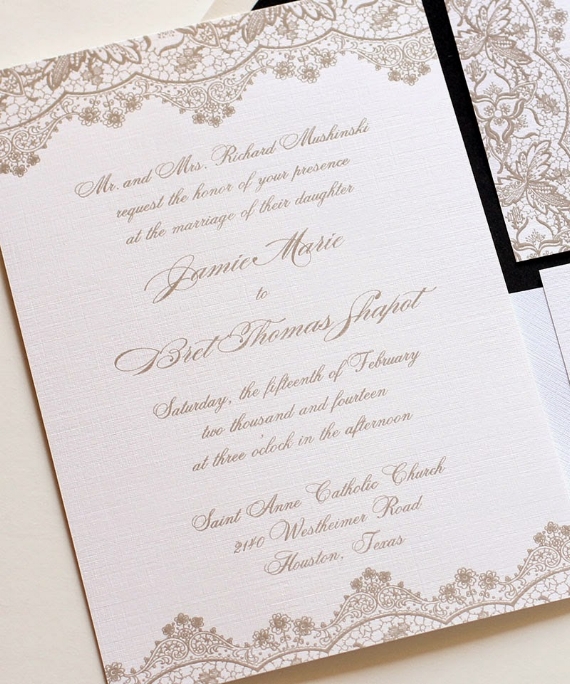 Mr. and Mrs. Richard Mushinski
request the honor of your presence
at the marriage of their daughter
Jamie Marie
to
Bret Thomas Shapot
Saturday, the fifteenth of February
two thousand and fourteen
at three o'clock in the afternoon
Saint Anne Catholic Church
2140 Westheimer Road
Houston, Texas